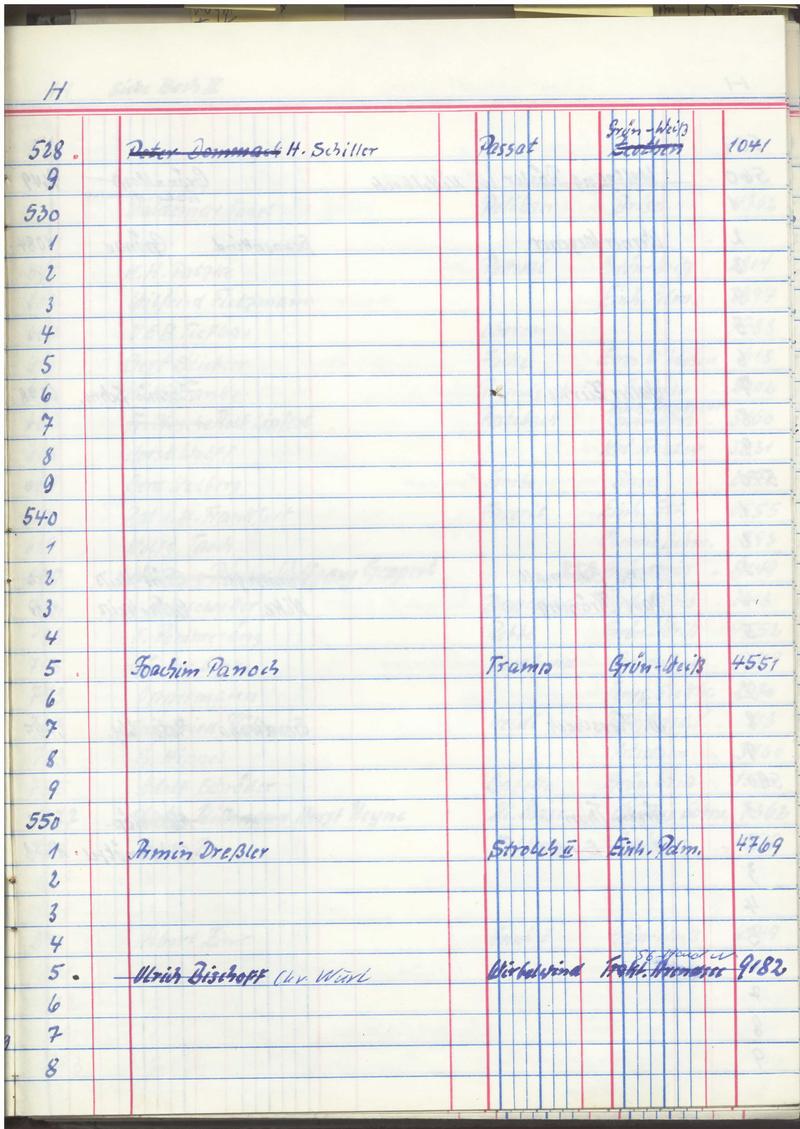 H
Grün-Weiß
528. Peter Dommach H. Schiller Passat 1041
9
530
1
2
3
4
5
6
7
8
9
540
1
2
3
4
5 Joachim Panoch Tramp Grün-Weiß 4551
6
7
8
9
550
1 Armin Dreßler Strolch II Einh. Pdm. 4769
2
3
4
5. Ulrich Bischoff Chr. Wirbelwind Arendsee 9182
6
7
8